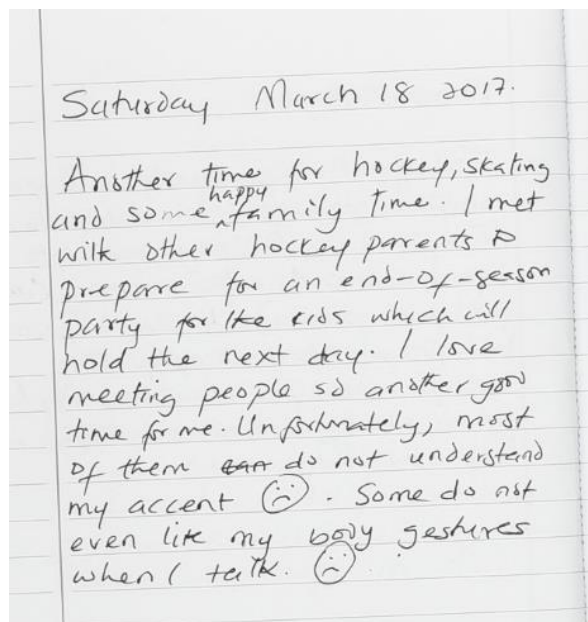 Saturday March 18 2017.
Another time for hockey, skating
and some happy family time. I met
with other hockey parents to
prepare for an end-of-season
party for the kids which will
hold the next day. I love
meeting people so another good
time for me. Unfortunately, most
of them can do not understand
my accent ☹. Some do not
even like my body gestures
when I talk. ☹